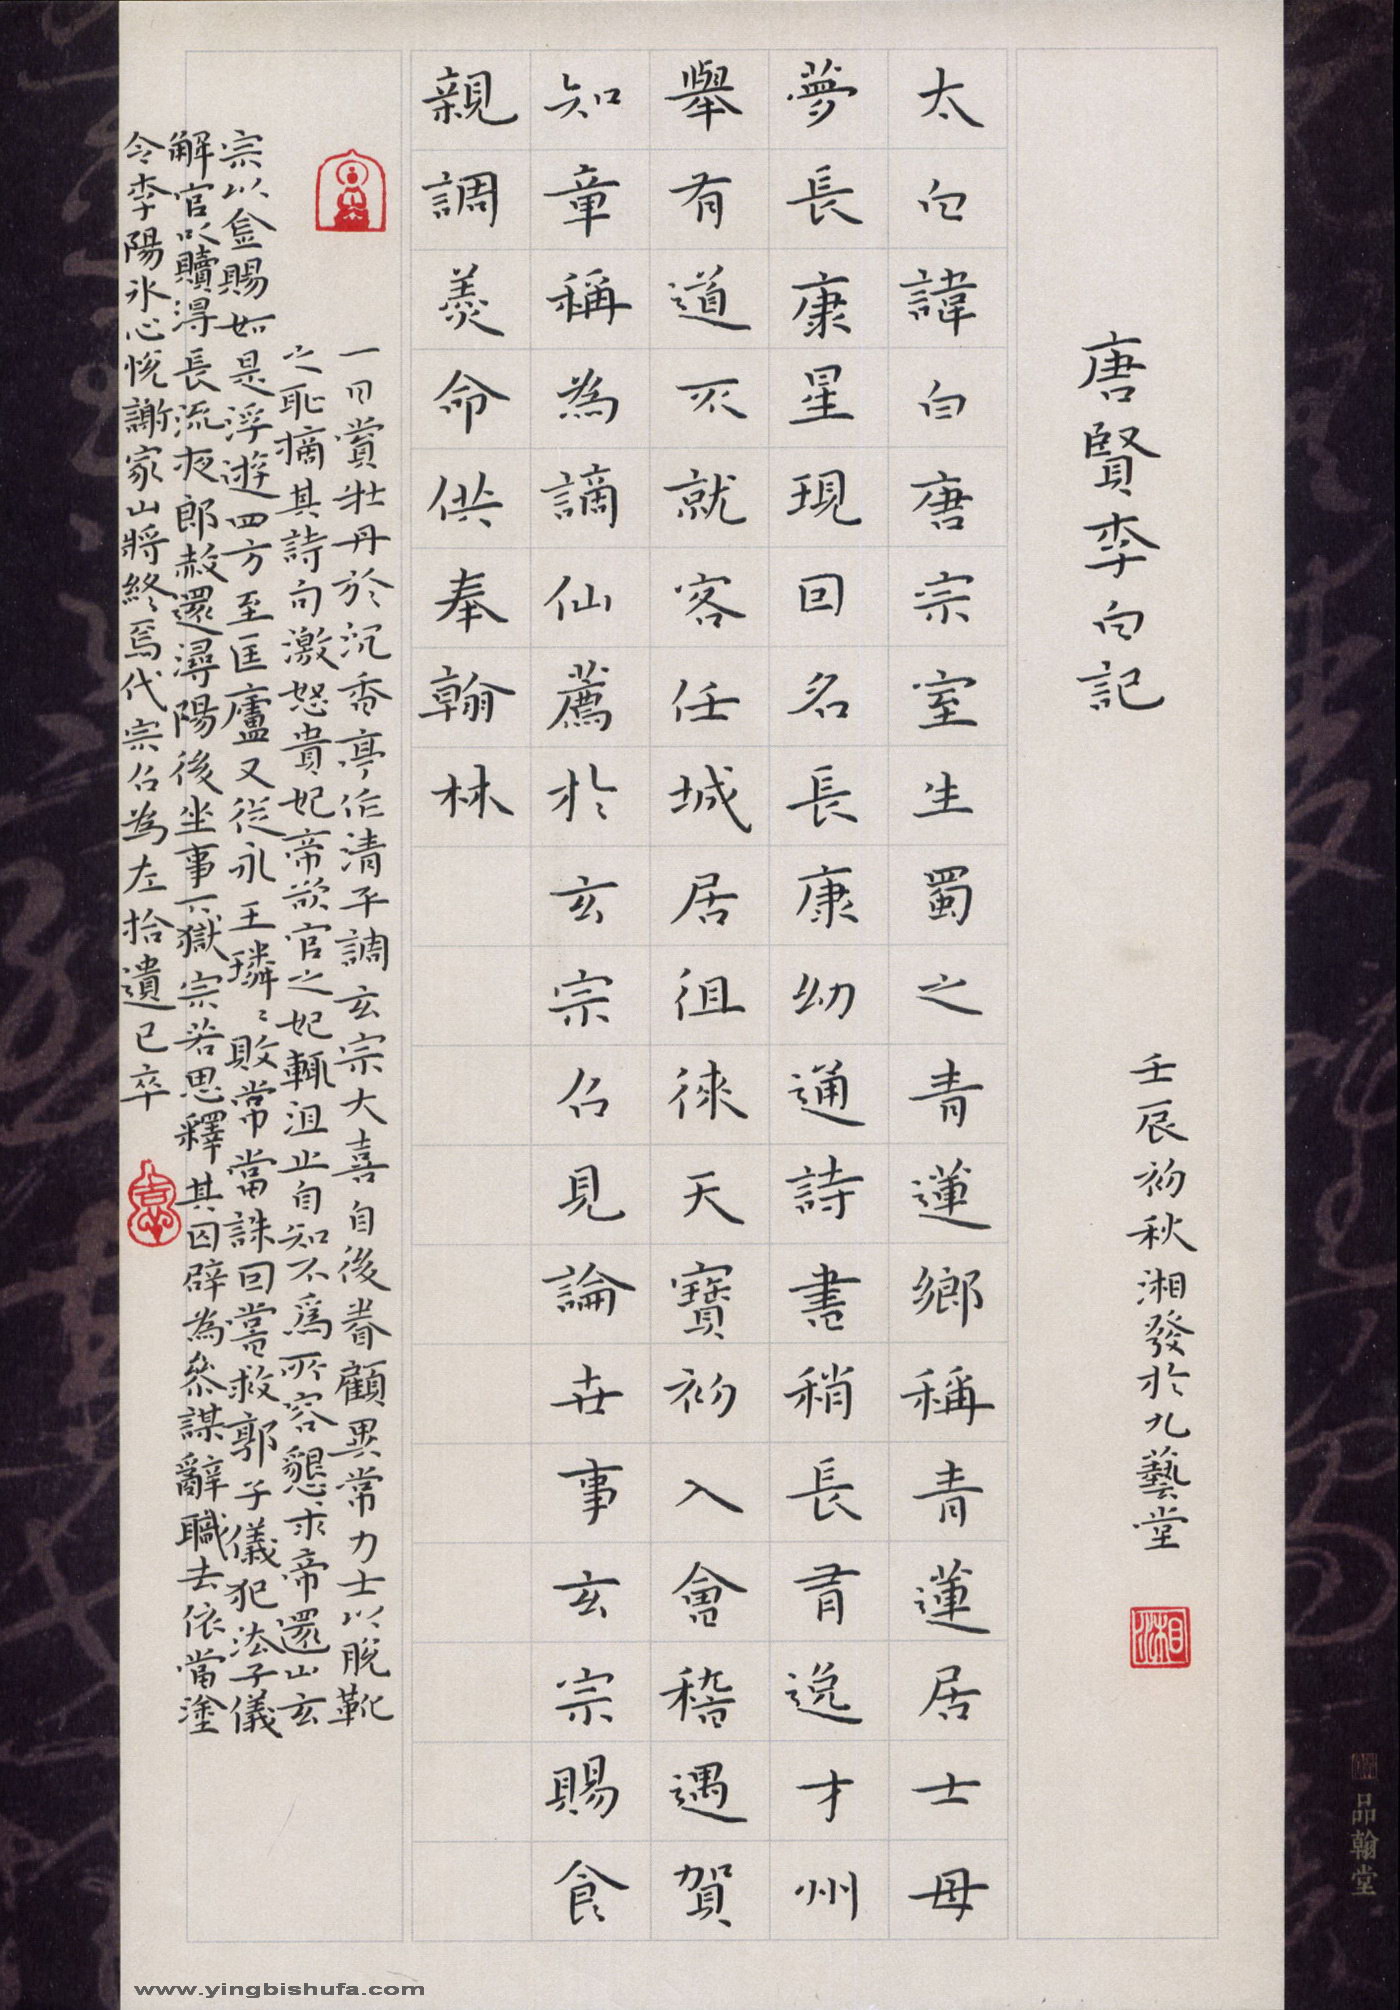 唐賢李白記
壬辰初秋湘發於九藝堂
太白諱白唐宗室生蜀之青蓮鄉稱青蓮居士母
夢長康星現回名長康幼通詩書稍長有逸才州
舉有道不就客任城居徂徠天寶初入會稽遇賀
知章稱為謫仙薦於玄宗召見論世事玄宗賜食
親調羹命供奉翰林
一日賞牡丹於沉香亭作清平調玄宗大喜自後眷顧異常力士以脫靴
之恥摘其詩句激怒貴妃帝欲官之妃輒沮止自知不為所容懇求帝還山玄
宗以金賜如是浮遊四方至匡廬又從永王璘〻敗常當誅回嘗救郭子儀犯法子儀
解官以贖得長流夜郎赦還潯陽後坐事下獄宗若思釋其囚辟為叅謀辭職去依當塗
令李陽氷心悅謝家山將終焉代宗召為左拾遺已卒
湘
品翰堂
www.yingbishufa.com